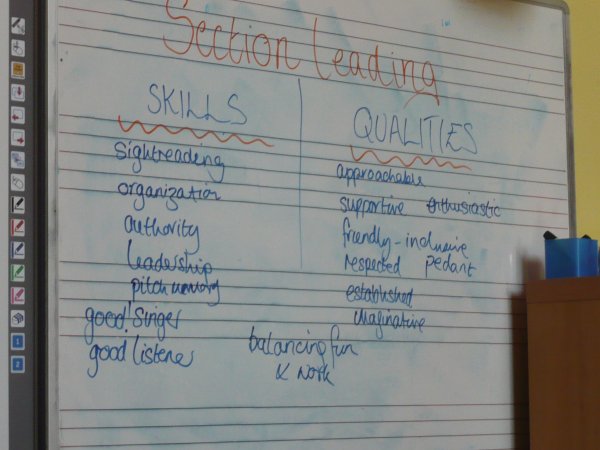 Section Leading
SKILLS
sightreading
organization
authority
leadership
pitch memory
good! singer
good listener
QUALITIES
approachable
supportive enthusiastic
friendly - inclusive
respected pedant
established
imaginative
balancing fun
& work
1
2